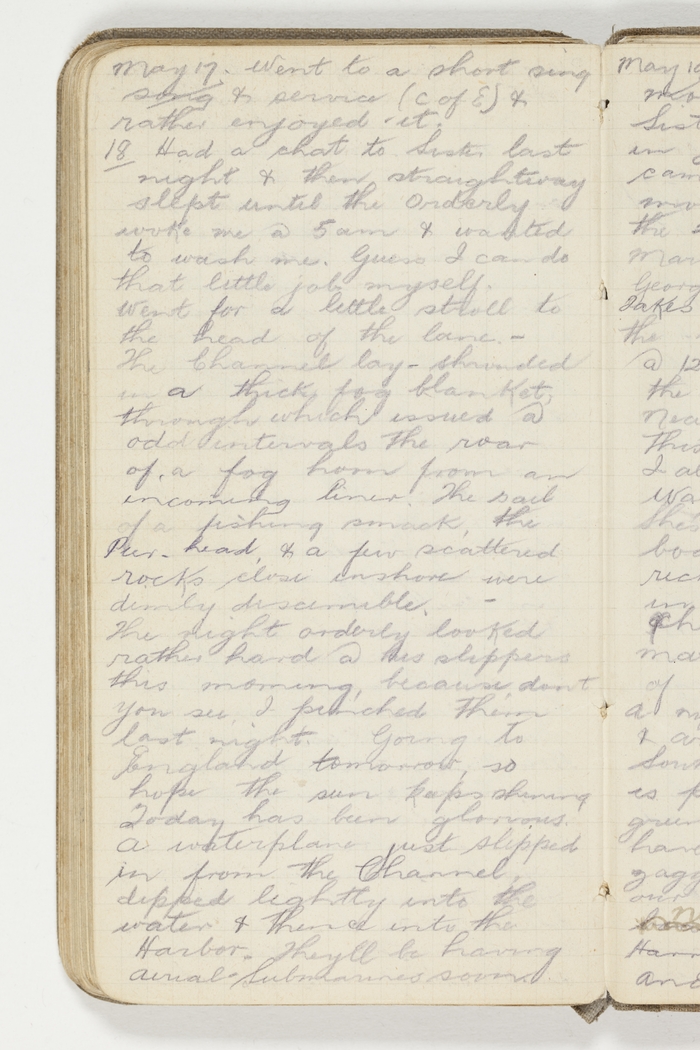 May 17. Went to a short sing
song & service (C of E) &
rather enjoyed it.
18 Had a chat to Sister last
night & then straightway
slept until the Orderly
woke me @ 5am & wanted
to wash me. Guess I can do
that little job myself.
Went for a little stroll to
the head of the lane. -
The Channel lay - shrouded
in a thick fog blanket,
through which issued @
odd intervals the roar
of a fog horn from an
incoming liner. The sail
of a fishing smack, the
Pier-head, & a few scattered
rocks close inshore were
dimly discernible. -
The night orderly looked
rather hard @ his slippers
this morning, because, dont
you see, I pinched them
last night. Going to
England tomorrow, so
hope the sun keeps shining
Today has been glorious.
A waterplane just slipped
in from the Channel,
dipped lightly into the
water & thence into the
Harbor. They'll be having
aerial-Submarines soon.
May
Sist
in
cam
mov
the
Mar
Georg
Takes
the
@ 12
the
nea
This
I al
wa
She's
boo
ric
in
ma
of
a
&
Sou
is
gree
han
zagg
our
Har
and